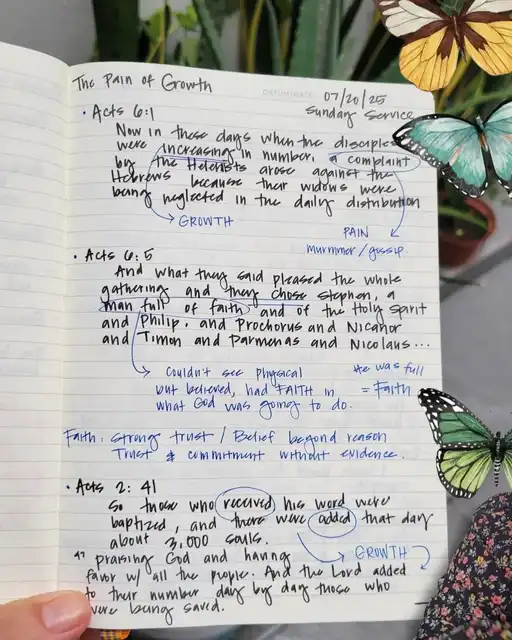 The Pain of Growth
DATUM/DATE:
07/20/25
Sunday Service
• Acts 6:1
Now in these days when the disciples
were increasing in number, a complaint
by the Helenists arose against the
Hebrews because their widows were
being neglected in the daily distribution
GROWTH
PAIN
murmmer/gossip
• Acts 6:5
And what they said pleased the whole
gathering and they chose Stephen, a
man full of faith and of the Holy Spirit
and Philip, and Prochorus and Nicanor
and Timon and Parmenas and Nicolaus...
Couldn't see physical
but believed, had FAITH in
what God was going to do.
He was full
= Faith
Faith: strong trust / Belief beyond reason
Trust & commitment without evidence.
• Acts 2:41
So those who received his word were
baptized, and there were added that day
about 3,000 souls.
GROWTH
47 praising God and having
favor w/ all the people. And the Lord added
to their number day by day those who
were being saved.